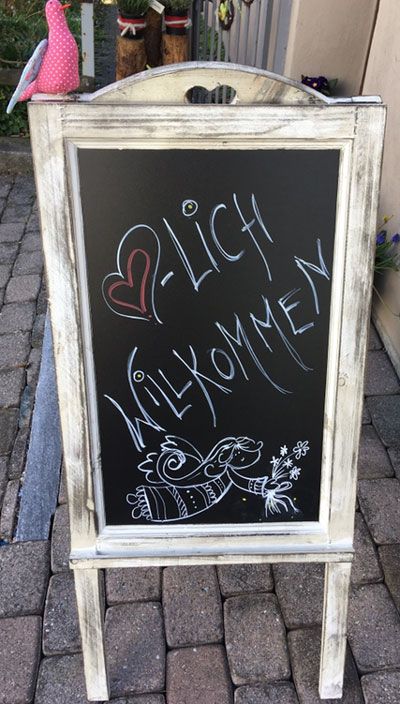 ❤-LICH
WILKOMMEN